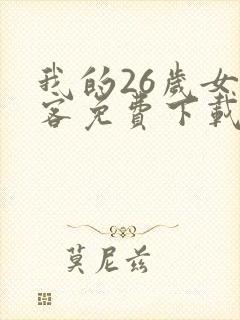 我的26歲女
客免費下載
莫尼茲